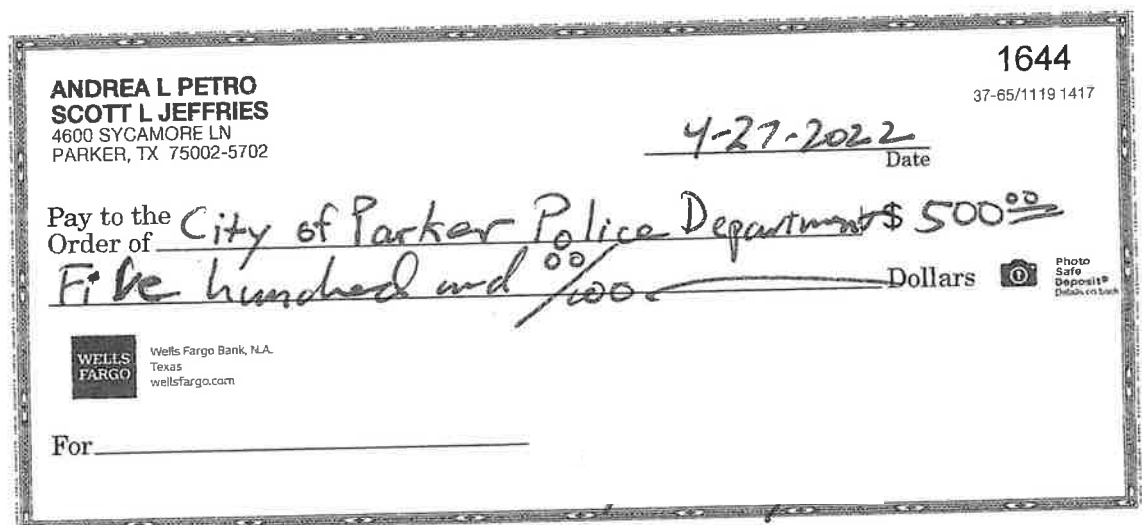 1644
37-65/1119 1417
ANDREA L PETRO
SCOTT L JEFFRIES
4600 SYCAMORE LN
PARKER, TX 75002-5702
4-27-2022
Date
Pay to the
Order of City of Parker Police Department $ 500 00
Five hundred and 00/100 Dollars
Photo
Safe
Deposit®
Details on back
WELLS
FARGO
Wells Fargo Bank, N.A.
Texas
wellsfargo.com
For